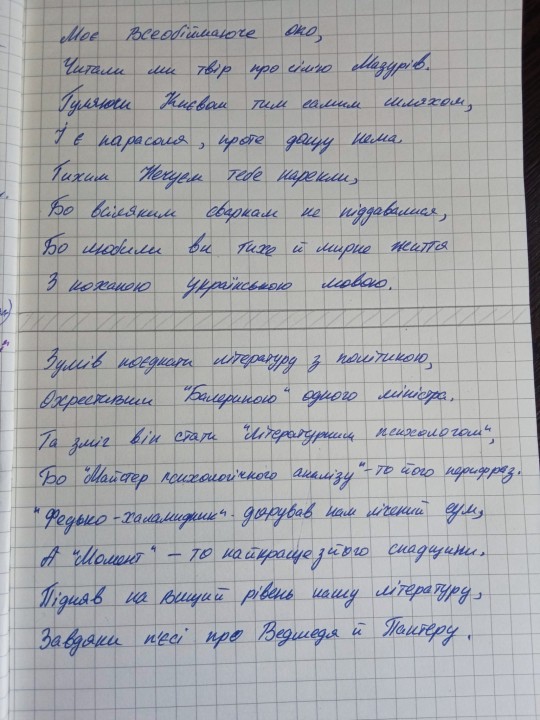 Моє Всеобіймаюче око,
Читали ми твір про сімю Мазурів.
Гуляючи Києвом тим самим шляхом,
Ї є парасоля, проте дощу нема.
Тихим Нечуєм тебе нарекли,
Бо всіляким сваркам не піддавалися,
Бо любили ви тихе й мирне життя
З коханою українською мовою.
Зумів поєднати літературу з політикою,
Охрестивши "Балериною" одного міністра.
Та зміг він стати "Літературним психологом",
Бо "Майстер психологічного аналізу" - то його перифраз.
"Федько-халамидник" дарував нам лічений сум,
А "Момент" – то найкраще з його спадщини.
Підняв на вищий рівень нашу літературу,
Завдяки п'єсі про Ведмедя й Пантеру.